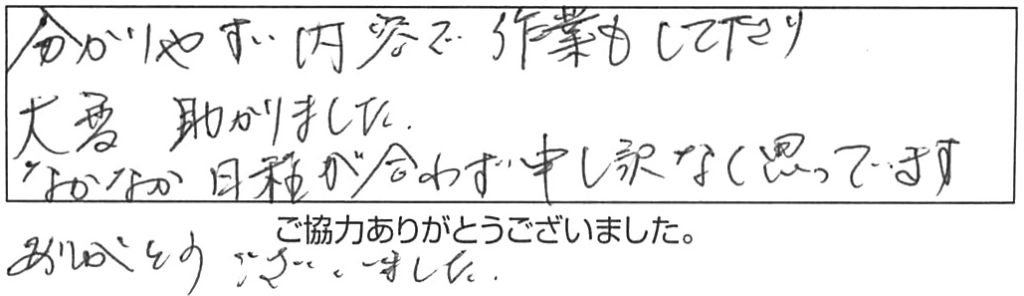 分かりやすい内容で作業もして下さり
大変助かりました.
なかなか日程が合わず申し訳なく思っています
ご協力ありがとうございました。
ありがとうございました.